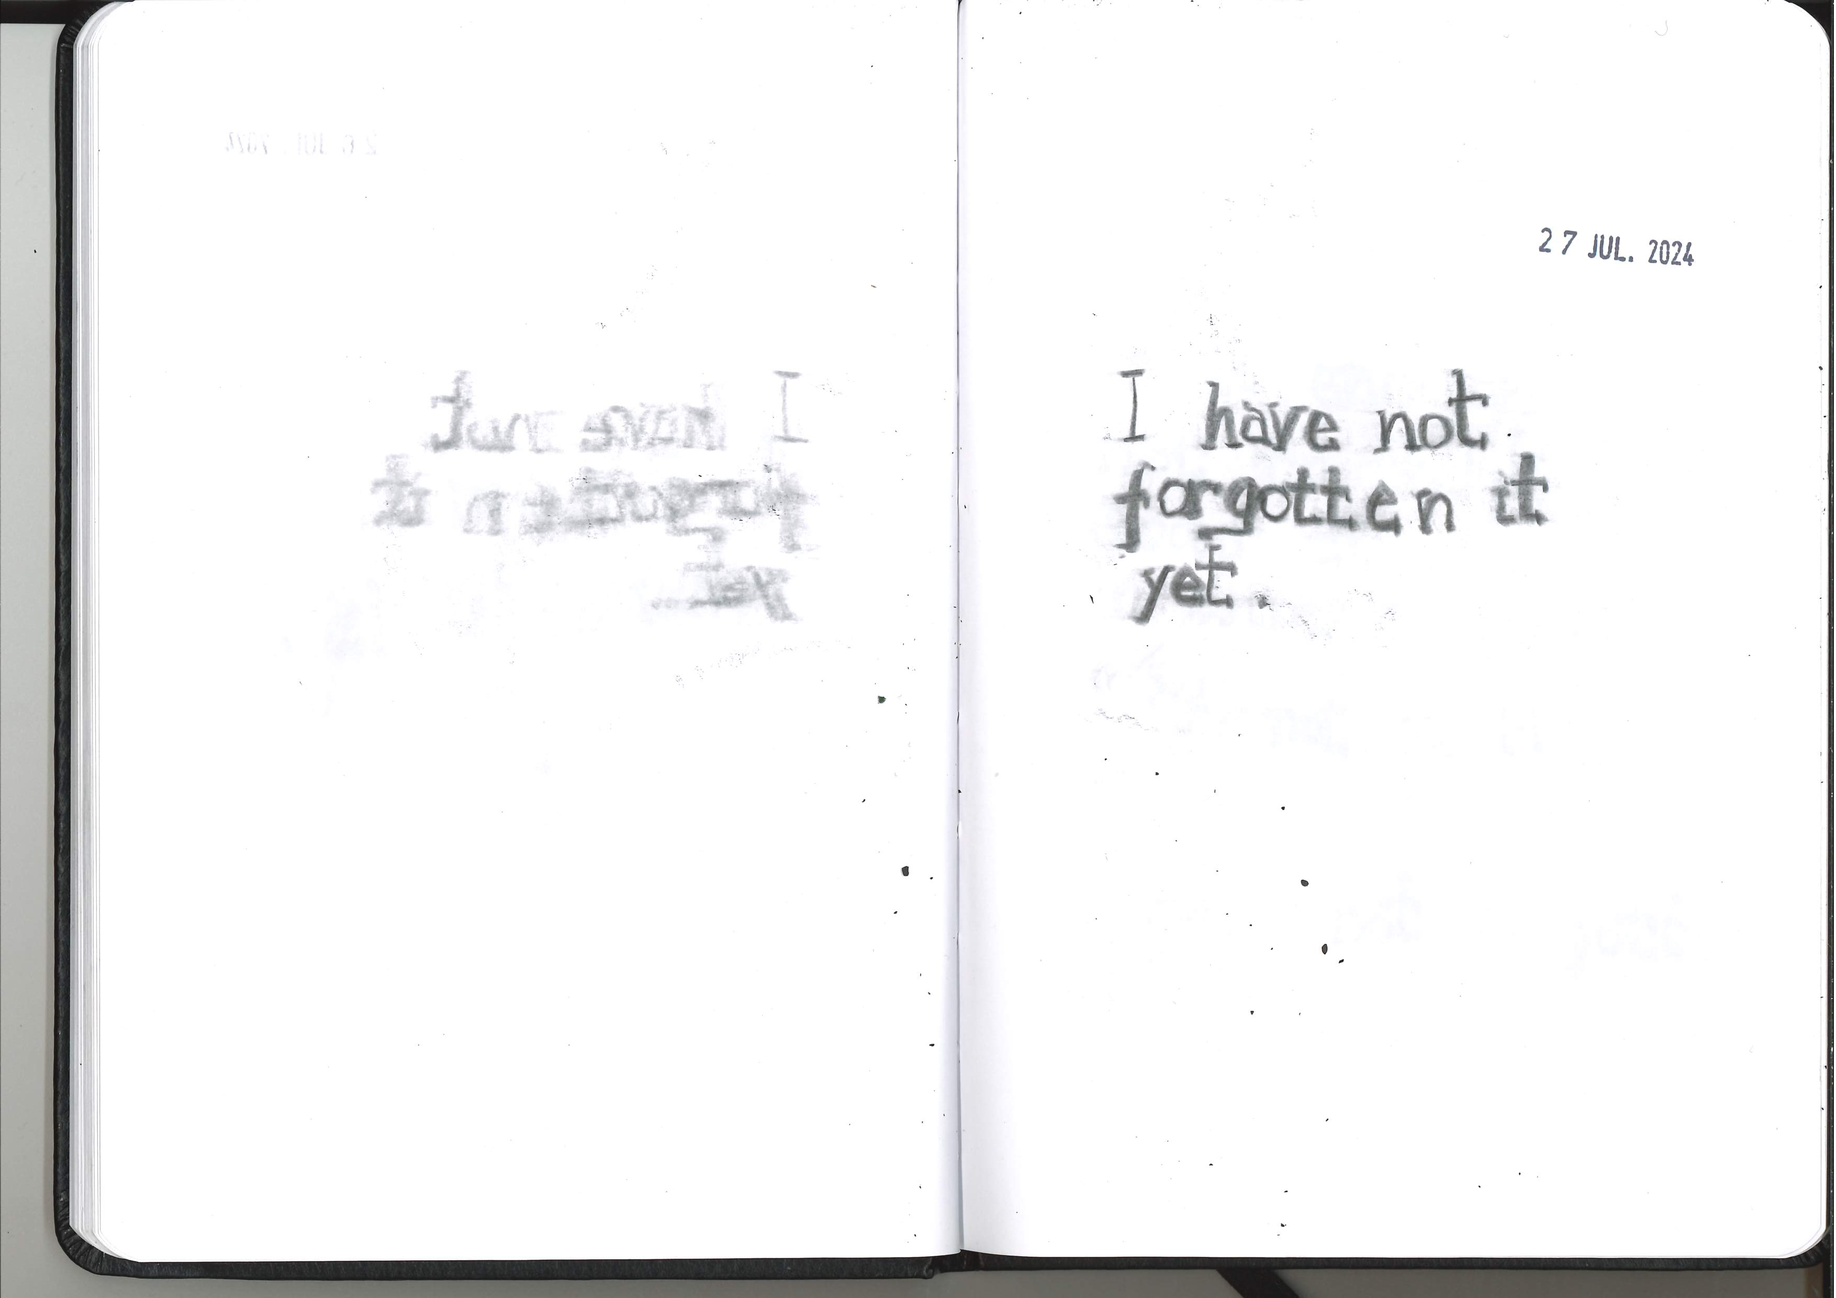 27 JUL. 2024
I have not
forgotten it
yet.